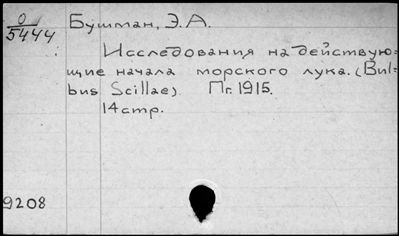 0
5444
Бушман, Э.А.
Исследования на действую=
щие начала морского лука. (Bul=
bus Scillae). Пг. 1915.
14 стр.
9208